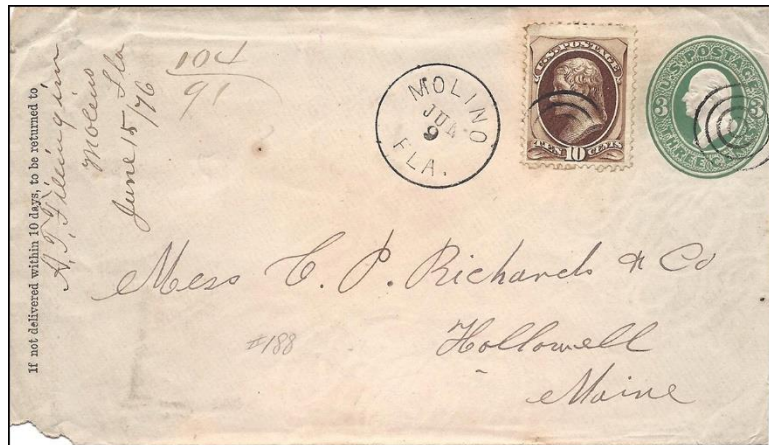 If not delivered within 10 days, to be returned to
A. T. Fillingim
Molino Fla
June 15/76
104
91
MOLINO
JUN
9
FLA.
U.S. POSTAGE
TEN 10 CENTS
U.S. POSTAGE
3 3
THREE CENTS
Mess C. P. Richards & Co
Hollowell
Maine
#188